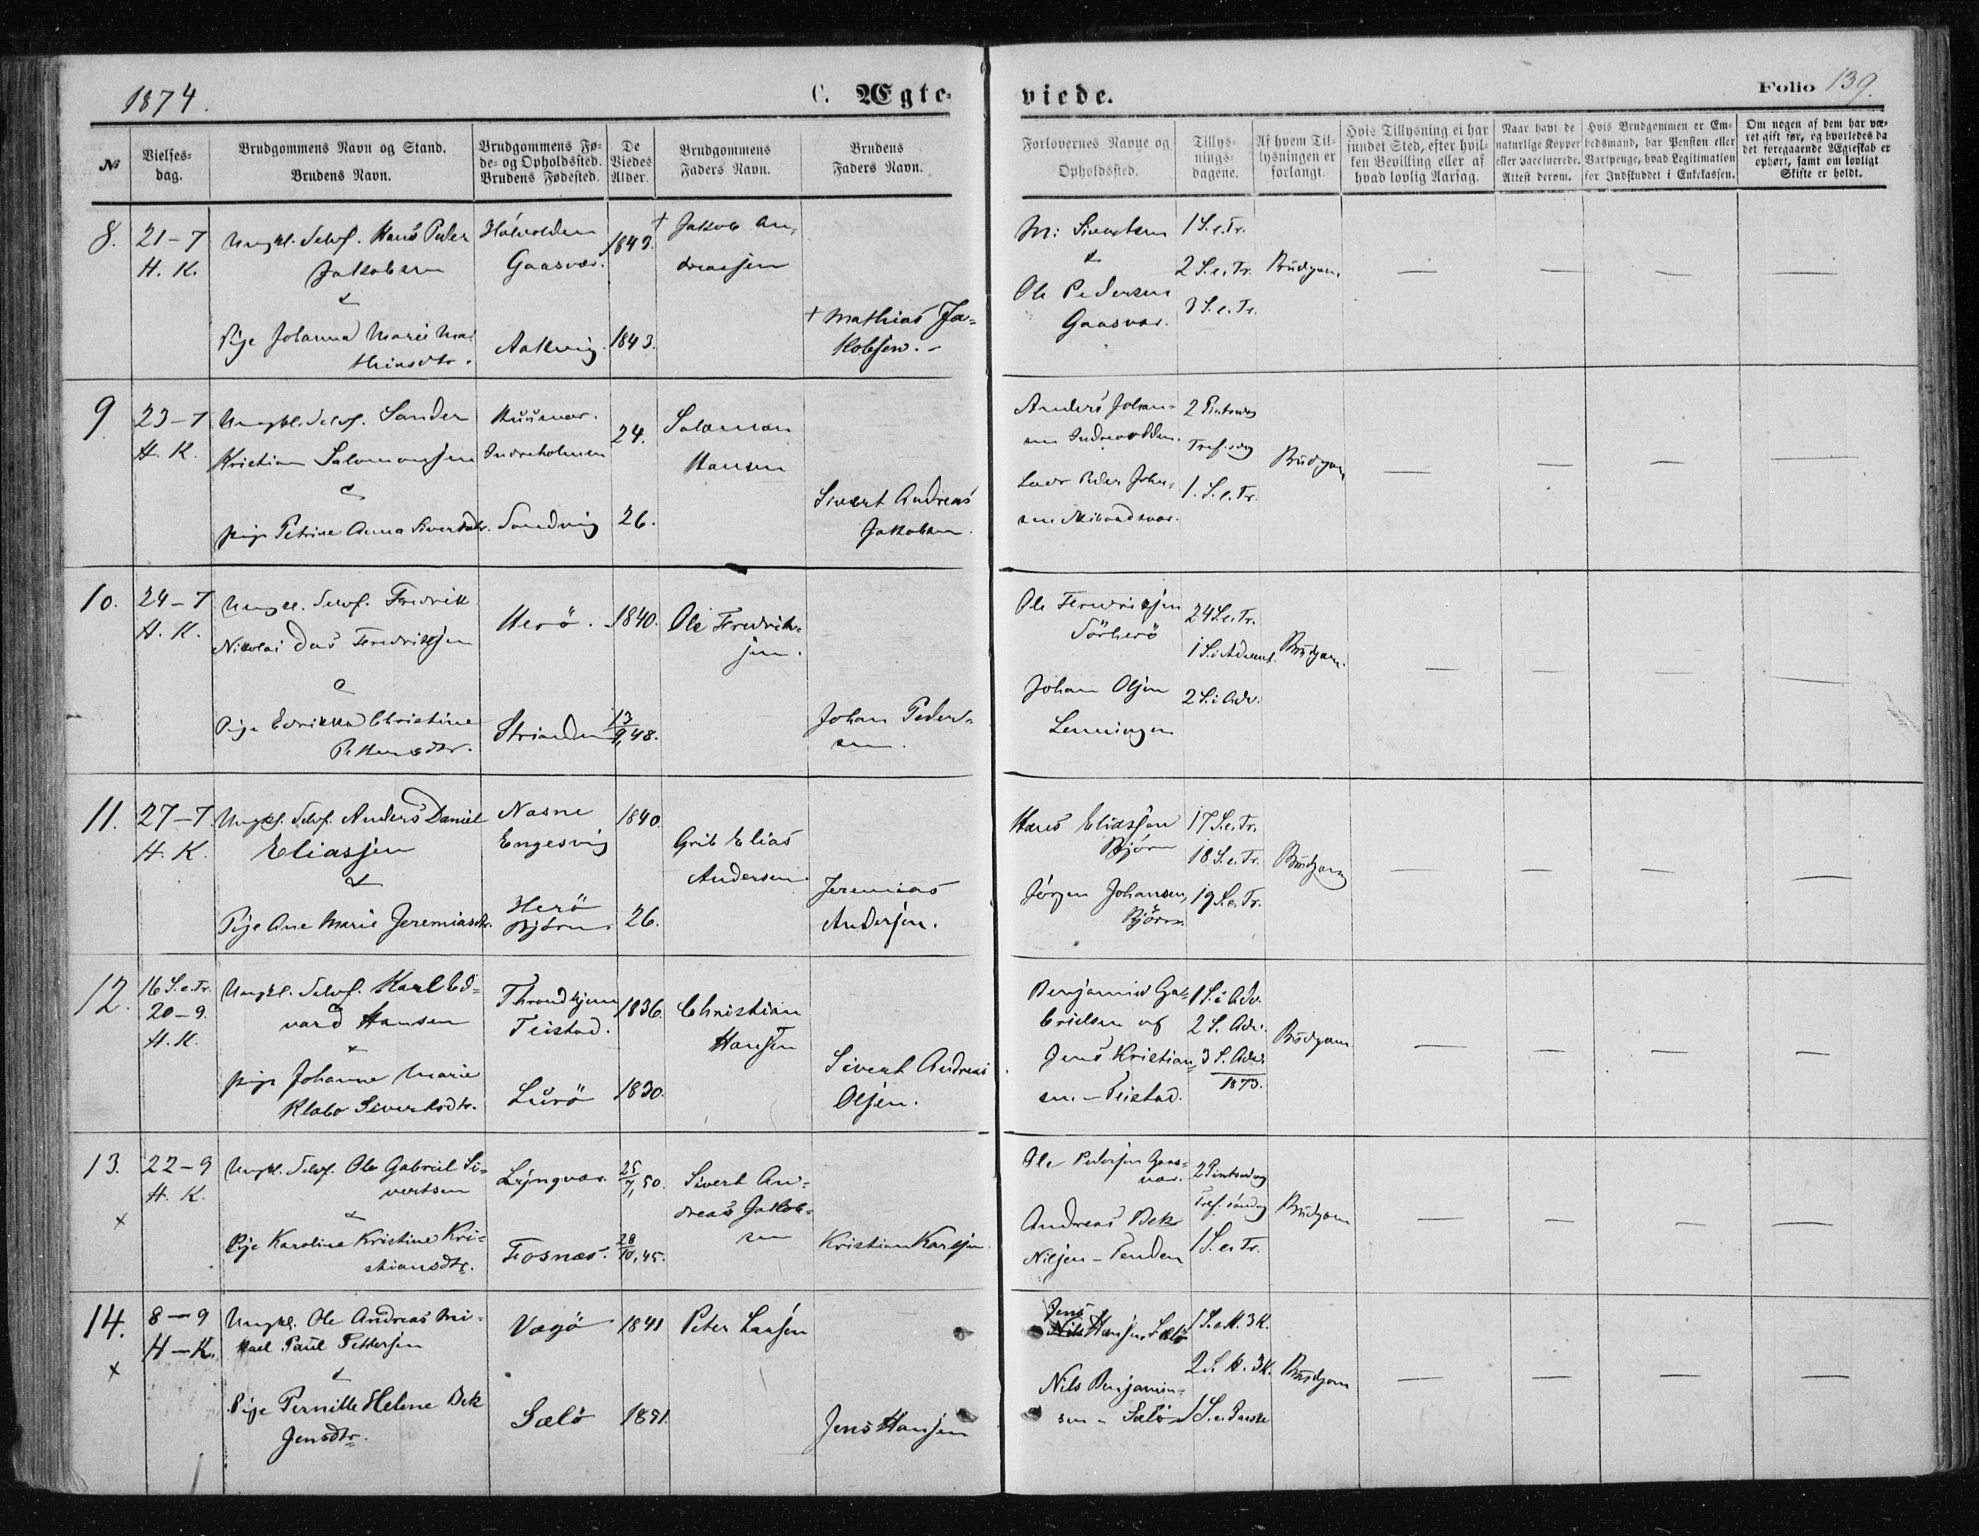 1874.
C. Ægte-
viede.
Folio 139.
№
Vielses-
dag.
Brudgommens Navn og Stand.
Brudens Navn.
Brudgommens Fø-
de- og Opholdssted.
Brudens Fødested.
De
Viedes
Alder.
Brudgommens
Faders Navn.
Brudens
Faders Navn.
Forlovernes Navne og
Opholdssted.
Tillys-
nings-
dagene.
Af hvem Til-
lysningen er
forlangt.
Hvis Tillysning ei har
fundet Sted, efter hvil-
ken Bevilling eller af
hvad lovlig Aarsag.
Naar havt de
naturlige Kopper
eller vaccinerede.
Attest derom.
Hvis Brudgommen er Em-
bedsmand, har Pension eller
Vartpenge, hvad Legitimation
for Indskuddet i Enkekassen.
Om nogen af dem har væ-
ret gift før, og hvorledes da
det foregaaende Ægteskab er
ophørt, samt om lovligt
Skifte er holdt.
8.
21-7
H. K.
Ungkl. Selvf. Hans Peder
Jakobsen
&
Pige Johanna Marie Ma-
thiasdtr.
Gaasvær.
Aakvig
1843.
1843.
+ Jakob An-
dreasjen
+ Mathias Ja-
kobsen.
M: Sivertsen
&
Ole Pedersen
Gaasvær.
1 S.e.Tr.
2 S.e.Tr.
3 S.e.Tr.
Brudgom.
9
23-7
H. K.
Ungkl. Selvf. Sander
Kristian Salomonsjen
&
pige Petrine Anna Sivertsdtr.
Indreholmen
Sandvig
24.
26.
Salomon
Hansen
Sivert Andreas
Jakobsen.
Anders Johan-
sen
Peder Johan-
sen
2 Pintsedag
Tref.sdag
1. S.e.Tr.
Brudgom
10.
24-7
H. K.
Ungkl. Selvf. Fredrik
Nikolai Das Fredriksjen
&
Pige Edrikka Christine
Herö.
Stranden
1840.
13/9, 48.
Ole Fredrik-
sjen.
Johan Peder-
sen.
Ole Fredriksjen
Sörherö
Johan Olsjen
24 S.e.Tr.
1 S.i Advent.
2 S.i Adv.
Brudgom.
11.
27-7
H. K.
Ungkl. Selvf. Anders Daniel
Eliassjen
&
Pige Ane Marie Jeremiasdtr.
Nasne
Engesvig
Herö
Björn.
1840.
26.
Grib Elias
Andersen.
Jeremias
Andersjen.
Hans Eliassjen
Björn
Jörgen Johansen,
Björn.
17 S.e.Tr.
18 S.e.Tr.
19 S.e.Tr.
Brudgom
12.
16 S.e.Tr.
20-9.
H. K.
Ungkl. Selvf. Karl Ed-
vard Hansen
&
pige Johanne Marie
Klabo Sivertsdtr.
Throndhjem
Teistad.
Lurö
1836.
1830.
Christian
Hansen
Sivert Andreas
Olsjen.
Benjamin Ga-
brielsen og
Jens Kristian-
sen. - Teistad.
1 S.i Adv.
2 S. Adv.
3 S. Adv.
1873.
Brudgom
13.
22-9
H. K.
x
Ungkl. Selvf. Ole Gabriel Si-
vertsen
&
Pige Karoline Kristine Kri-
stiansdtr.
Lyngvær.
Fosnæs.
25/7, 50.
28/10, 45.
Sivert An-
dreas Jakob-
sen
Kristian Karlsjen.
Ole Pedersjen Gaas-
vær.
Andreas Bek
Nilsjen - Tenden
2 Pintsedag
Tref. söndag
1 S.e.Tr.
Brudgom
14.
8-9
H-K.
x
Ungkl. Ole Andreas Mi-
kael Paul Pettersjen
&
Pige Pernille Helene Bek
Jensdtr.
Vegö
Sælö
1841
1851.
Peter Larsjen
Jens Hansjen
Jens
Nils Hansjen Sælö
Nils Benjamin-
sen - Sælö
1 S.e.H. 3 K.
2 S. H. 3 K.
1 S.e. Paaske
Brudgom